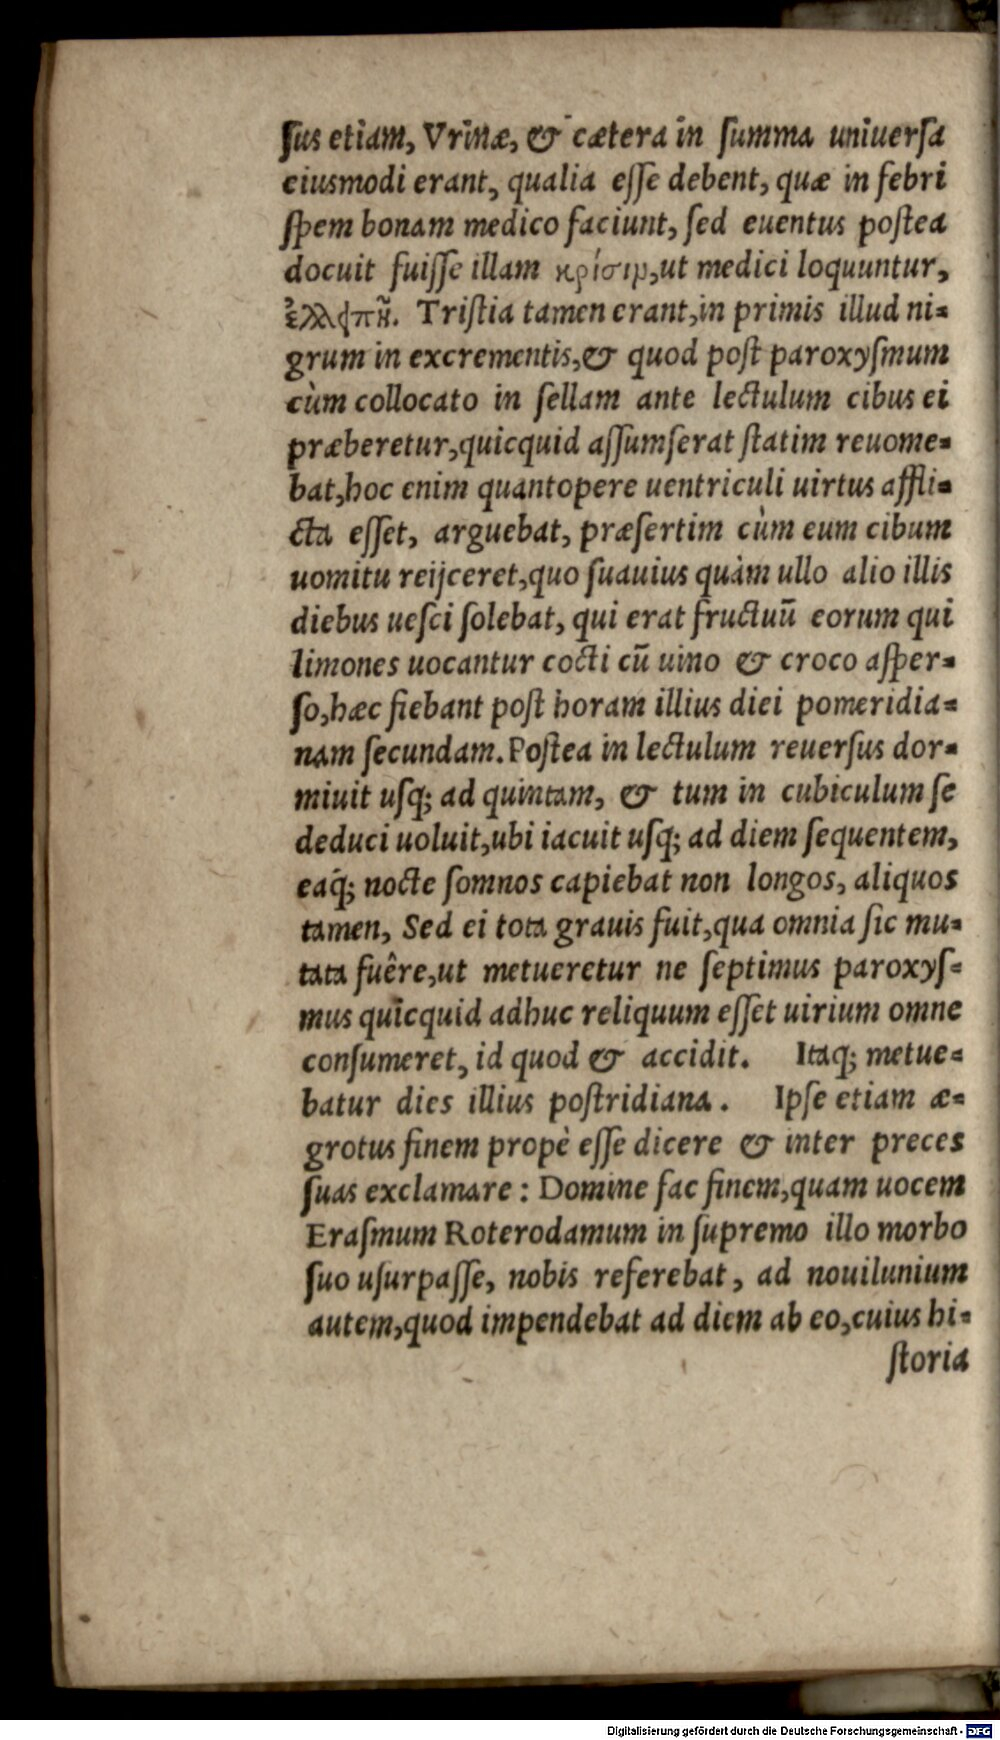 ſus etiam, Vrinæ, & cætera in ſumma uniuerſa
eiusmodi erant, qualia eſſe debent, quæ in febri
ſpem bonam medico faciunt, ſed euentus poſtea
docuit fuiſſe illam κρίσιμ, ut medici loquuntur,
ἐλλιπῆ. Triſtia tamen erant, in primis illud ni-
grum in excrementis, & quod poſt paroxyſmum
cùm collocato in ſellam ante lectulum cibus ei
præberetur, quicquid aſſumſerat ſtatim reuome-
bat, hoc enim quantopere uentriculi uirtus affli-
cta eſſet, arguebat, præſertim cùm eum cibum
uomitu reijceret, quo ſuauius quàm ullo alio illis
diebus ueſci ſolebat, qui erat fructuũ eorum qui
limones uocantur cocti cũ uino & croco aſper-
ſo, hæc fiebant poſt horam illius diei pomeridia-
nam ſecundam. Poſtea in lectulum reuerſus dor-
miuit uſq; ad quintam, & tum in cubiculum ſe
deduci uoluit, ubi iacuit uſq; ad diem ſequentem,
eaq́; nocte ſomnos capiebat non longos, aliquos
tamen, Sed ei tota grauis fuit, qua omnia ſic mu-
tata fuêre, ut metueretur ne ſeptimus paroxyſ-
mus quicquid adhuc reliquum eſſet uirium omne
conſumeret, id quod & accidit. Itaq; metue-
batur dies illius poſtridiana. Ipſe etiam æ-
grotus finem propè eſſe dicere & inter preces
ſuas exclamare: Domine fac finem, quam uocem
Eraſmum Roterodamum in ſupremo illo morbo
ſuo uſurpaſſe, nobis referebat, ad nouilunium
autem, quod impendebat ad diem ab eo, cuius hi-
ſtoria
Digitalisierung gefördert durch die Deutsche Forschungsgemeinschaft - DFG